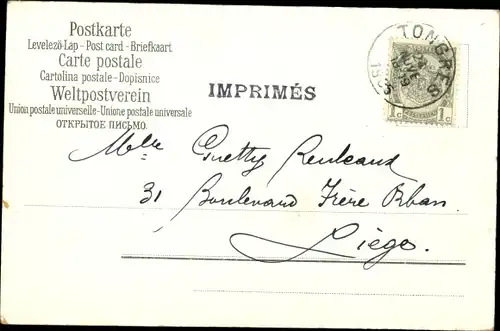 Postkarte
Levelező-Lap - Post card - Briefkaart
Carte postale
Cartolina postale - Dopisnice
Weltpostverein
Union postale universelle - Unione postale universale
ОТКРЫТОЕ ПИСЬМО.
IMPRIMÉS
TONGRES
1c 1c
Melle
31 Boulevard Frère Orban.
Liége.